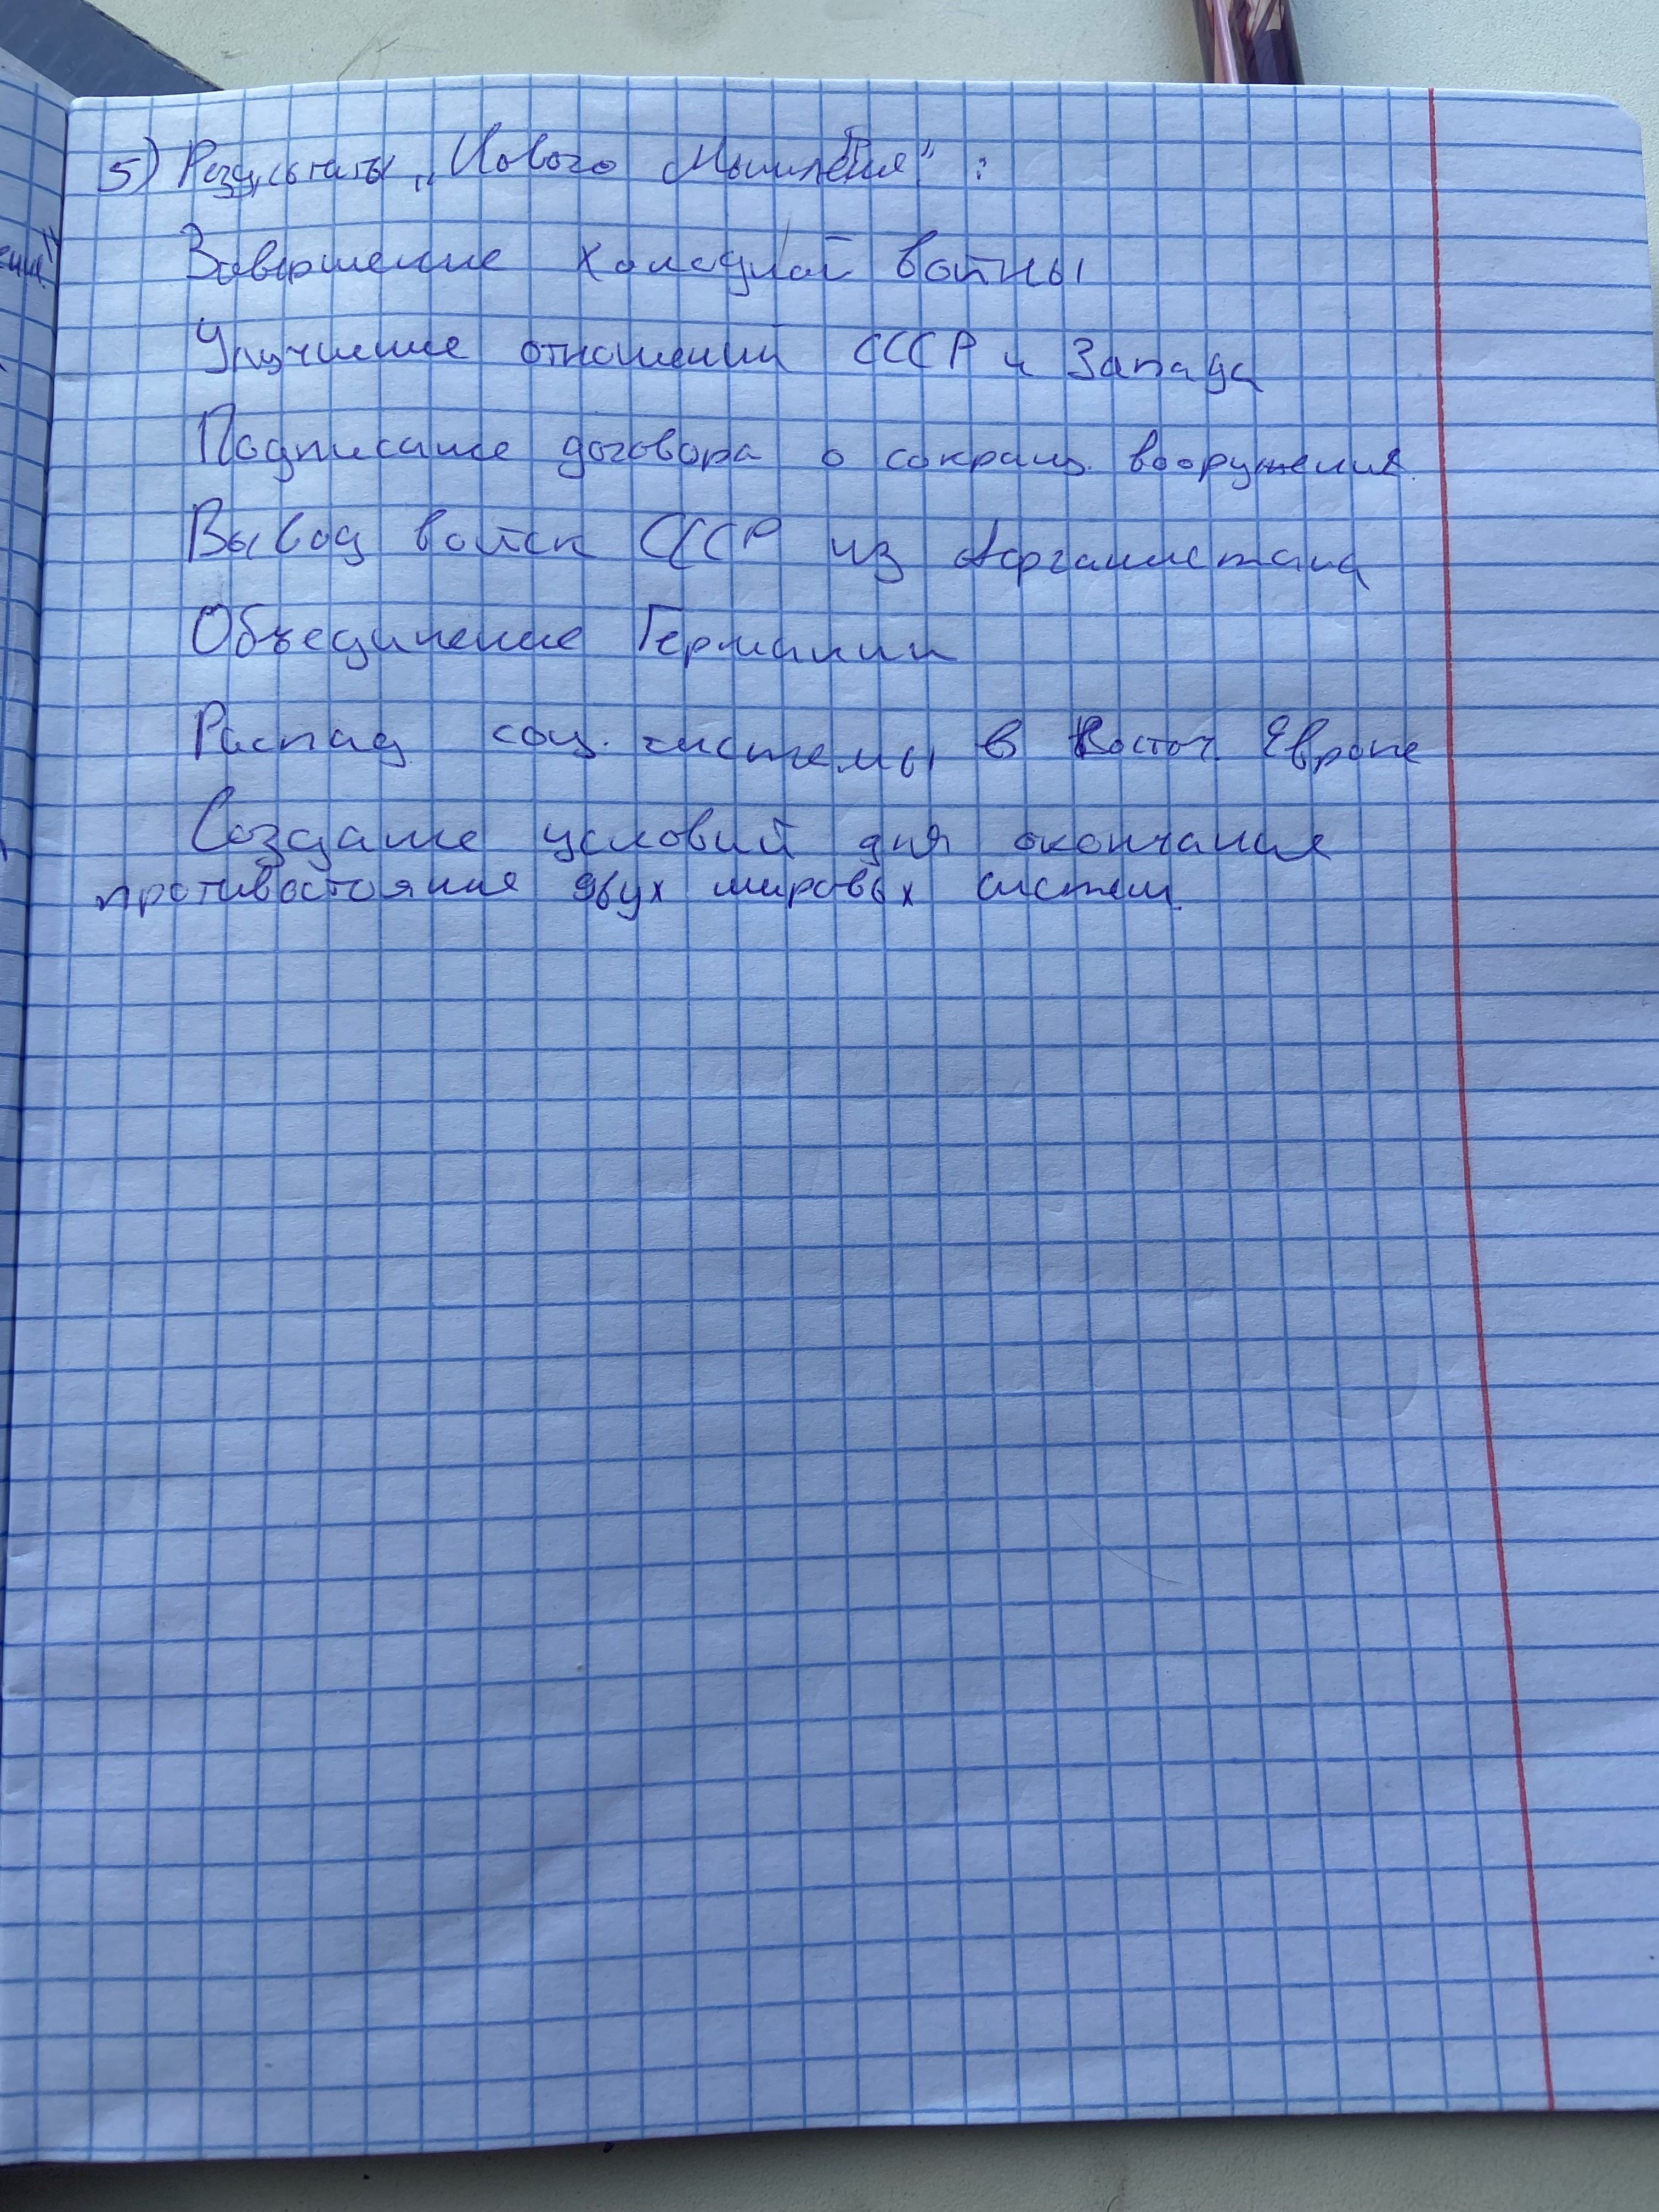 5) Результаты „Нового Мышления":
Завершение холодной войны
Улучшение отношений СССР и Запада
Подписание договора о сокращ. вооружения.
Вывод войск СССР из Афганистана
Объединение Германии
Распад соц. системы в Восточ. Европе
Создание условий для окончания
противостояния двух мировых систем.